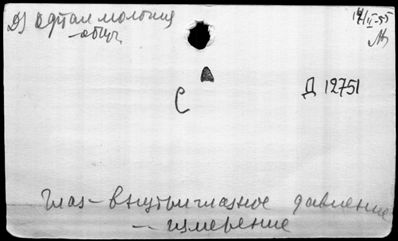 Офтальмология 14/II-55
-общ.
С
Д 12751
Глаз-внутриглазное давление
-- измерение